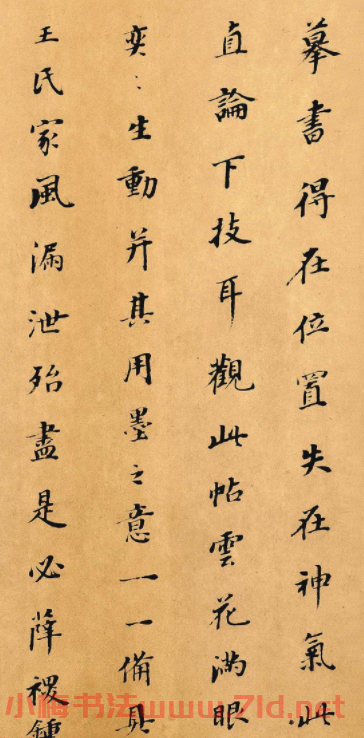 摹書得在位置失在神氣此
直論下技耳觀此帖雲花滿眼
奕〻生動并其用墨之意一一備具
王氏家風漏泄殆盡是必薛稷鍾
小梅书法www.7ld.net